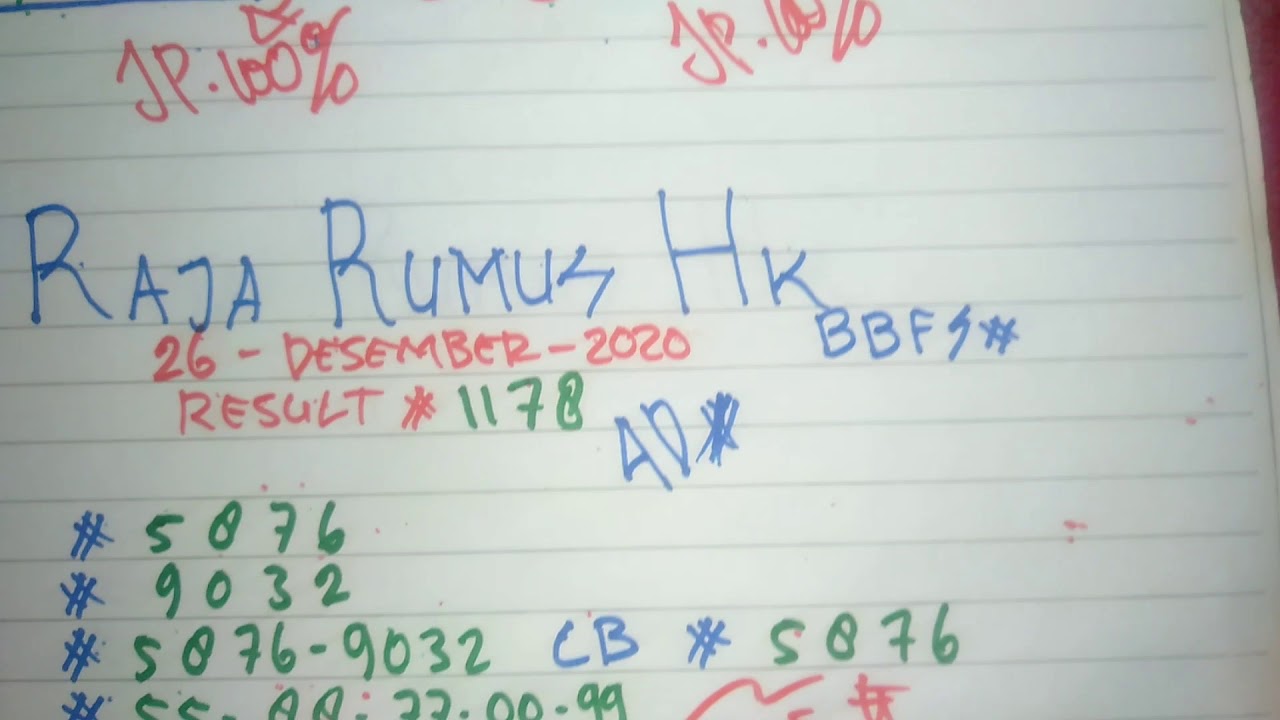 JP.100% JP.100%
RAJA RUMUS HK
BBFS#
26 - DESEMBER - 2020
RESULT # 1178
AD#
# 5876
# 9032
# 5876-9032 CB # 5876
# 55-88-77-00-99